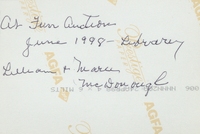 At Fun Auction
June 1998 - Library
Lillian + Marie
McDonough
AGFA